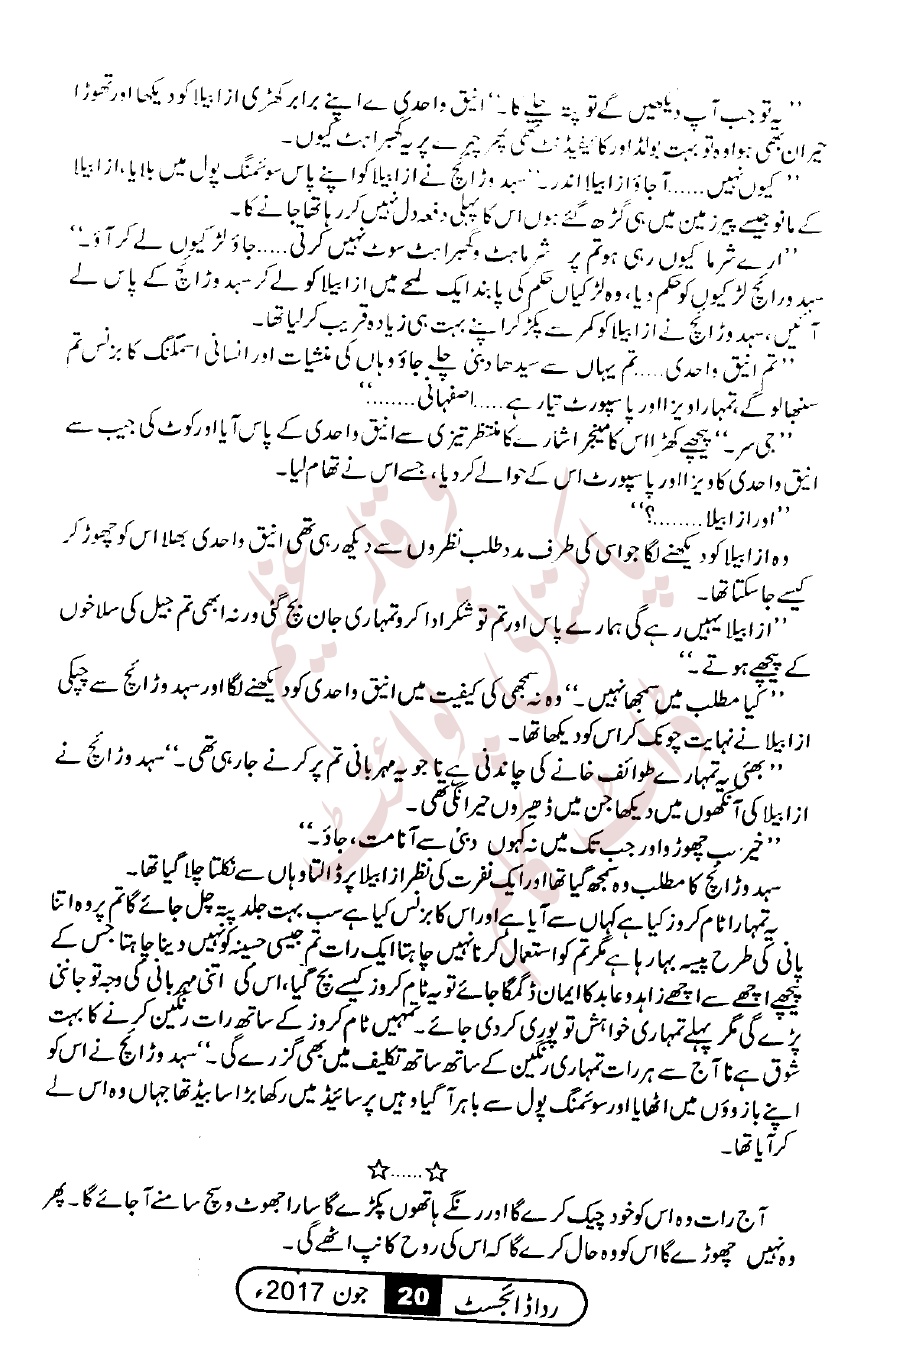 ”یہ تو جب آپ دیکھیں گے تو پتہ چلے گا۔“ انیق واحدی نے اپنے برابر کھڑی ازابیلا کو دیکھا اور تھوڑا
حیران بھی ہوا وہ تو بہت بولڈ اور کانفیڈنٹ تھی پھر چہرے پر یہ گھبراہٹ کیوں۔
”کیوں نہیں......آجاؤ ازابیلا اندر۔“ سہد وڑائچ نے ازابیلا کو اپنے پاس سوئمنگ پول میں بلایا، ازابیلا
کے مانو جیسے پیر زمین میں ہی گڑھ گئے ہوں اس کا پہلی دفعہ دل نہیں کر رہا تھا جانے کا۔
”ارے شرما کیوں رہی ہو تم پر شرماہٹ و گھبراہٹ سوٹ نہیں کرتی.....جاؤ لڑکیوں لے کر آؤ۔“
سہد وڑائچ لڑکیوں کو حکم دیا، وہ لڑکیاں حکم کی پابند ایک لمحے میں ازابیلا کو لے کر سہد وڑائچ کے پاس لے
آئیں، سہد وڑائچ نے ازابیلا کو کمر سے پکڑ کر اپنے بہت ہی زیادہ قریب کر لیا تھا۔
”تم انیق واحدی.....تم یہاں سے سیدھا دبئی چلے جاؤ وہاں کی منشیات اور انسانی اسمگلنگ کا بزنس تم
سنبھالو گے تمہارا ویزا اور پاسپورٹ تیار ہے.....اصفہانی........“
”جی سر۔“ پیچھے کھڑا اس کا منیجر اشارے کا منتظر تیزی سے انیق واحدی کے پاس آیا اور کوٹ کی جیب سے
انیق واحدی کا ویزا اور پاسپورٹ اس کے حوالے کر دیا، جسے اس نے تھام لیا۔
”اور ازابیلا........؟“
وہ ازابیلا کو دیکھنے لگا جو اسی کی طرف مدد طلب نظروں سے دیکھ رہی تھی انیق واحدی بھلا اس کو چھوڑ کر
کیسے جا سکتا تھا۔
”ازابیلا یہیں رہے گی ہمارے پاس اور تم تو شکر ادا کرو تمہاری جان بچ گئی ورنہ ابھی تم جیل کی سلاخوں
کے پیچھے ہوتے۔“
”کیا مطلب میں سمجھا نہیں۔“ وہ نہ سمجھی کی کیفیت میں انیق واحدی کو دیکھنے لگا اور سہد وڑائچ سے چپکی
ازابیلا نے نہایت چونک کر اس کو دیکھا تھا۔
”بھئی یہ تمہارے طوائف خانے کی چاندنی ہے نا جو یہ مہربانی تم پر کرنے جا رہی تھی۔“ سہد وڑائچ نے
ازابیلا کی آنکھوں میں دیکھا جن میں ڈھیروں حیرانگی تھی۔
”خیر سب چھوڑو اور جب تک میں نہ کہوں دبئی سے آنا مت، جاؤ۔“
سہد وڑائچ کا مطلب وہ سمجھ گیا تھا اور ایک نفرت کی نظر ازابیلا پر ڈالتا وہاں سے نکلتا چلا گیا تھا۔
یہ تمہارا ٹام کروز کیا ہے کہاں سے آیا ہے اور اس کا بزنس کیا ہے سب بہت جلد پتہ چل جائے گا تم پر وہ اتنا
پانی کی طرح پیسہ بہا رہا ہے مگر تم کو استعمال کرنا نہیں چاہتا ایک رات تم جیسی حسینہ کو نہیں دینا چاہتا جس کے
پیچھے اچھے سے اچھے زاہد و عابد کا ایمان ڈگمگا جائے تو یہ ٹام کروز کیسے بچ گیا، اس کی اتنی مہربانی کی وجہ تو جاننی
پڑے گی مگر پہلے تمہاری خواہش تو پوری کر دی جائے۔ تمہیں ٹام کروز کے ساتھ رات رنگین کرنے کا بہت
شوق ہے نا آج سے ہر رات تمہاری رنگین کے ساتھ ساتھ تکلیف میں بھی گزرے گی۔“ سہد وڑائچ نے اس کو
اپنے بازوؤں میں اٹھایا اور سوئمنگ پول سے باہر آ گیا وہیں پر سائیڈ میں رکھا بڑا سا بیڈ تھا جہاں وہ اس لے
کر آیا تھا۔
☆......☆
آج رات وہ اس کو خود چیک کرے گا اور رنگے ہاتھوں پکڑے گا سارا جھوٹ و سچ سامنے آ جائے گا۔ پھر
وہ نہیں چھوڑے گا اس کو وہ حال کرے گا کہ اس کی روح کانپ اٹھے گی۔
رداڈائجسٹ 20 جون 2017ء
پاکستانی پوائنٹ
ڈاٹ کام
وقار عظیم